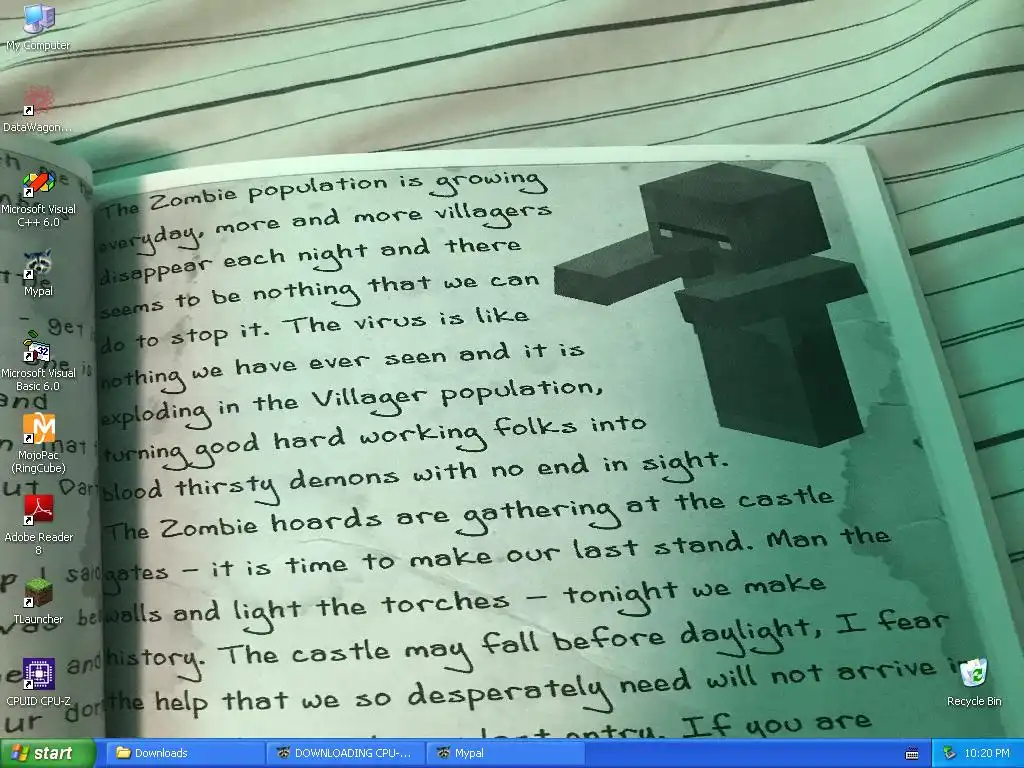 My Computer
DataWagon...
Microsoft Visual
C++ 6.0
Mypal
Microsoft Visual
Basic 6.0
MojoPac
(RingCube)
Adobe Reader
8
TLauncher
CPUID CPU-Z
Recycle Bin
The Zombie population is growing
everyday, more and more villagers
disappear each night and there
seems to be nothing that we can
do to stop it. The virus is like
nothing we have ever seen and it is
exploding in the Villager population,
turning good hard working folks into
blood thirsty demons with no end in sight.
The Zombie hoards are gathering at the castle
gates - it is time to make our last stand. Man the
walls and light the torches - tonight we make
history. The castle may fall before daylight, I fear
the help that we so desperately need will not arrive
entry. If you are
start
Downloads
DOWNLOADING CPU-...
Mypal
10:20 PM